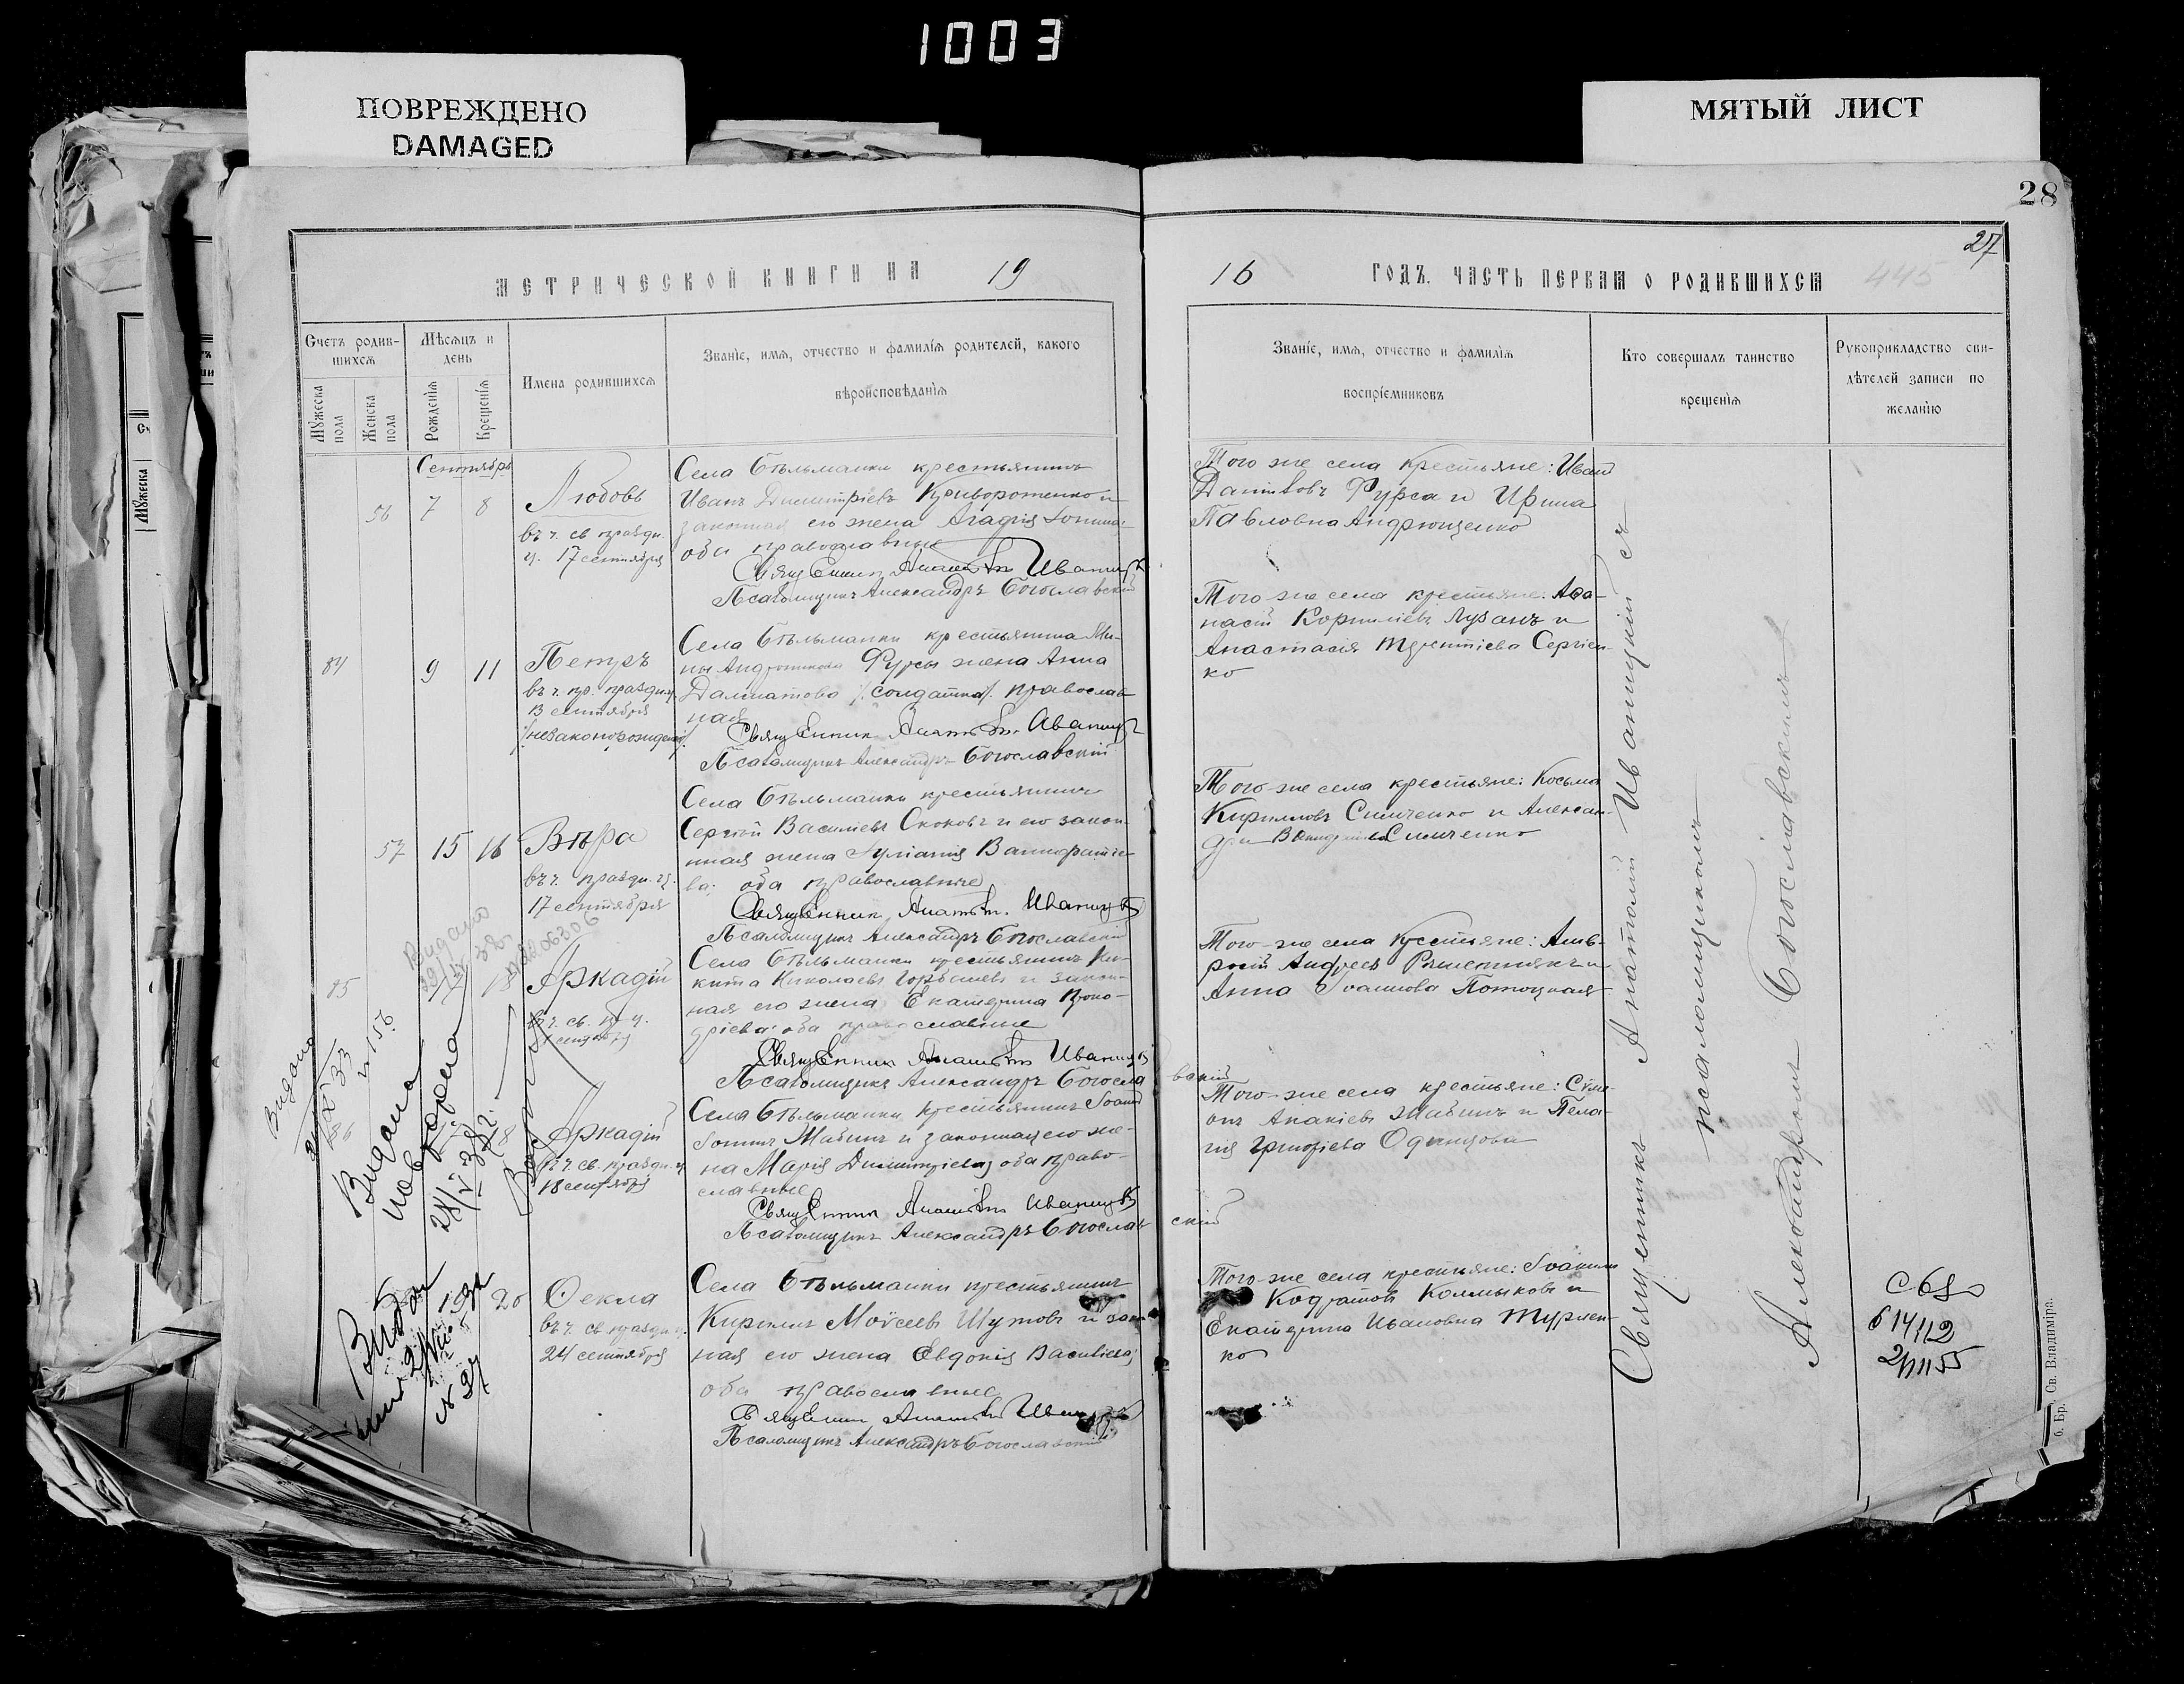 1003
ПОВРЕЖДЕНО
DAMAGED
МЯТЫЙ ЛИСТ
28
27
МЕТРИЧЕСКОЙ КНИГИ НА 19
16 ГОДЪ. ЧАСТЬ ПЕРВАЯ О РОДИВШИХСЯ 445
Счетъ родив-
шихся
Мужеска
пола
Женска
пола
Мѣсяцъ и
день
Рожденія
Крещенія
Имена родившихся
Званіе, имя, отчество и фамилія родителей, какого
вѣроисповѣданія
Званіе, имя, отчество и фамилія
воспріемниковъ
Кто совершалъ таинство
крещенія
Рукоприкладство сви-
дѣтелей записи по
желанію
Сентябрь
56 7 8 Любовь
въ ч. св. праздн.
ц. 17 сентября
Села Бѣльманки крестьянинъ
Иванъ Димитріевъ Криворотенко и
законная его жена Агафія
оба православные
Священник Анатолій Иваницкій
Псаломщикъ Александръ Богославскій
Того же села крестьяне: Иванъ
Фурса и Ирина
Павловна Андрющенко
84 9 11 Петръ
въ ч. пр. праздн.
13 сентября
/незаконорожденный/
Села Бѣльманки крестьянина Ми-
ны Фурсы жена Анна
Далматова /:солдатка/: православ-
ная
Священник Анатолій Иваницкій
Псаломщикъ Александръ Богославскій
Того-же села крестьяне: Аѳа-
насій Корниліевъ Лузанъ и
Анастасія Терентіева Сергіен-
ко
57 15 16 Вѣра
въ ч. праздн. ц.
17 сентября
Села Бѣльманки крестьянинъ
Сергій Василіевъ Скоковъ и его закон-
ная жена Іуліанія
ва: оба православные
Священник Анатолій Иваницкій
Псаломщикъ Александръ Богославскій
Того-же села крестьяне: Косьма
Кирилловъ Симченко и Алексан-
дра Симченко
Видано
85 18 Аркадій
въ ч. св. пр. ц.
сентября
Села Бѣльманки крестьянинъ Ни-
кита Николаевъ Горбачевъ и закон-
ная его жена Екатерина
оба православные
Священник Анатолій Иваницкій
Псаломщикъ Александръ Богославскій
Того-же села крестьяне: Амв-
росій Андреевъ Решетнякъ и
Анна Іоаннова Потоцкая
Видано
86 18 Аркадій
въ ч. св. праздн. ц.
18 сентября
Села Бѣльманки крестьянинъ Іоаннъ
Ѳоминъ Жабинъ и законная его же-
на Марія Димитріева; оба право-
славные
Священник Анатолій Иваницкій
Псаломщикъ Александръ Богославскій
Того-же села крестьяне: Сѵме-
онъ Жабинъ и Пела-
гія Григоріева Одинцова
Видана
повторна
28/V 38 г.
19 20 Ѳекла
въ ч. св. праздн. ц.
24 сентября
Села Бѣльманки крестьянинъ
Кириллъ Моѵсеевъ Шутовъ и закон-
ная его жена Евдокія Василіева;
оба православные
Священник Анатолій Иваницкій
Псаломщикъ Александръ Богославскій
Того-же села крестьяне: Іоакимъ
Кодратовъ Колмыковъ и
Екатерина Ивановна Турлен-
ко
Священникъ Анатолій Иваницкій съ
псаломщикомъ
Александромъ Богославскимъ
б 14112
2/11 55
б. Бр. Св. Владиміра.